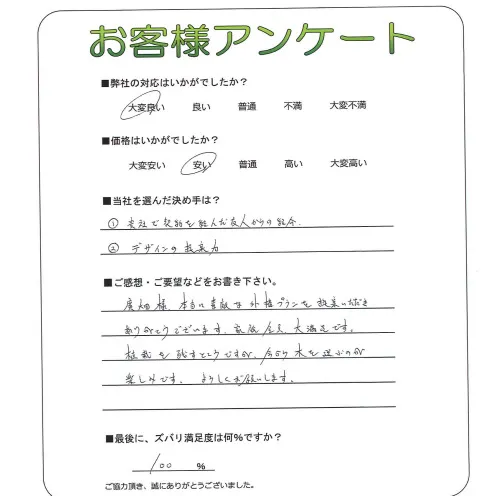 お客様アンケート
■弊社の対応はいかがでしたか？
大変良い 良い 普通 不満 大変不満
■価格はいかがでしたか？
大変安い 安い 普通 高い 大変高い
■当社を選んだ決め手は？
① 貴社で契約を結んだ友人からの紹介.
② デザインの提案力
■ご感想・ご要望などをお書き下さい。
様 本当に素敵な外構プランを提案いただき
ありがとうございます。家族全員 大満足です。
植栽を残すところですが、今から木を選ぶのが
楽しみです。 よろしくお願いします。
■最後に、ズバリ満足度は何%ですか？
100 %
ご協力頂き、誠にありがとうございました。